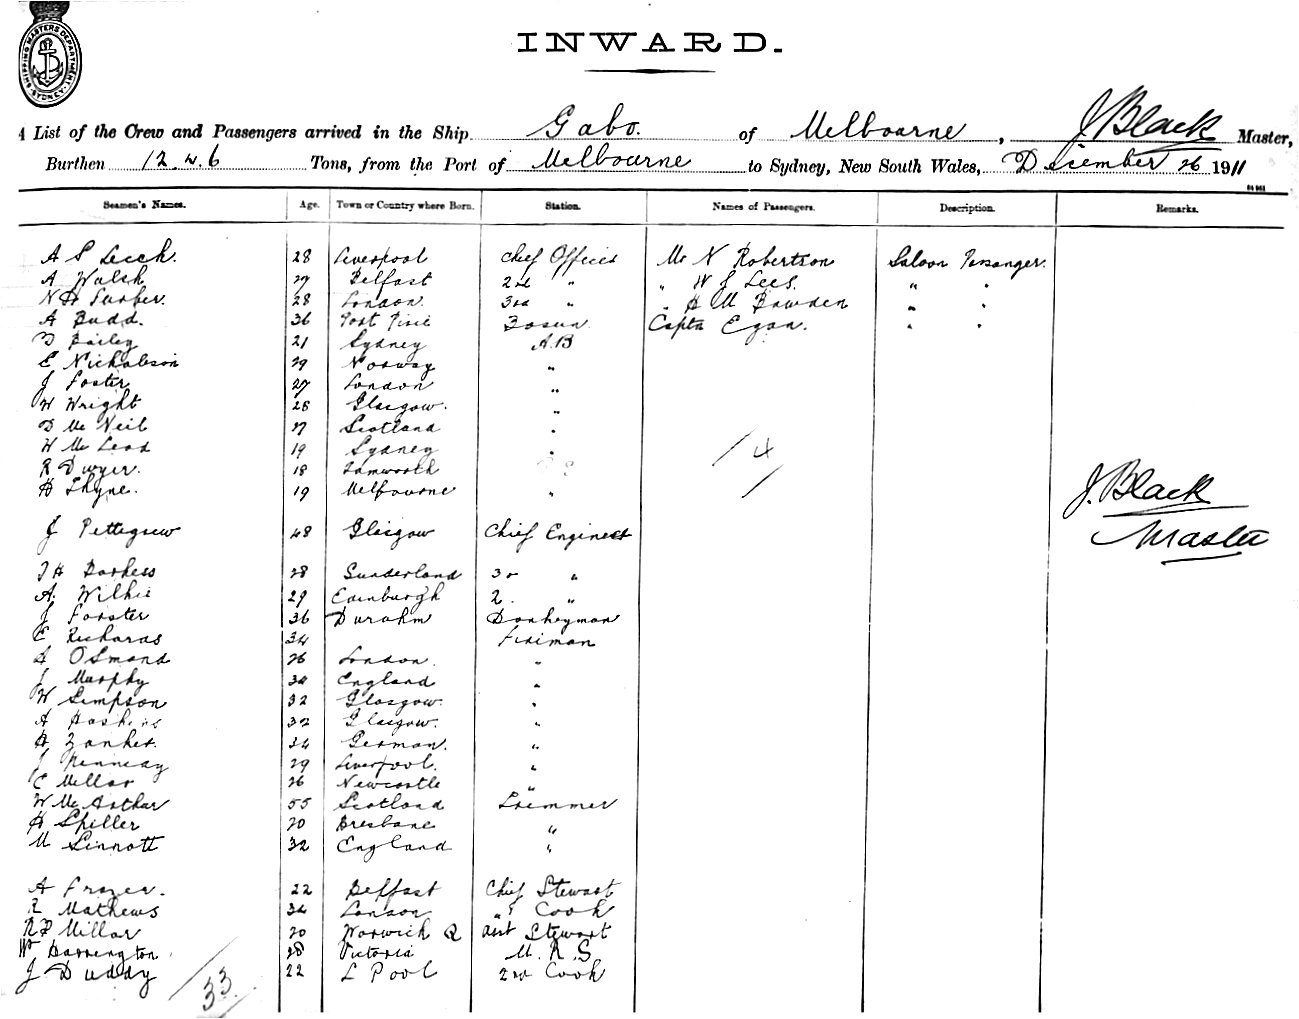 SHIPPING MASTERS DEPARTMENT SYDNEY
INWARD.
A List of the Crew and Passengers arrived in the Ship Gabo. of Melbourne, J. Black Master,
Burthen 1246 Tons, from the Port of Melbourne to Sydney, New South Wales, December 26 1911
Seamen's Names. Age. Town or Country where Born. Station. Names of Passengers. Description. Remarks.
A S Leech. 28 Liverpool Chief Officer Mr N Robertson Saloon Passanger.
A Walsh 27 Belfast 2nd " " W J Lees. " "
N H Furber. 28 London. 3rd " " H M Bowden " "
A Budd. 36 Port Pirie Bosun. Captn Egan. " "
Bailey 21 Sydney A.B
E Nicholson 29 Norway "
J Foster 27 London "
W Wright 28 Glasgow. "
D Mc Neil 27 Scotland "
W Mc Leod 19 Sydney "
R Dwyer. 18 Tamworth
H Thyne. 19 Melbourne "
4
J. Black
Master
J Pettigrew 48 Glasgow Chief Engineer
J H Harkess 28 Sunderland 3rd "
A. Wilkie 29 Edinburgh 2. "
J Forster 36 Durahm Donkeyman
E Richards 34 Fireman
A OSmond 26 London. "
J Murphy 34 England "
W Simpson 32 Glasgow. "
A Hoskins 32 Glasgow. "
H Zanker. 34 German. "
J Kennedy 29 Liverpool. "
C Millar 26 Newcastle "
W Mc Arthur 55 Scotland Trimmer
H Spiller 20 Brisbane "
M Sinnott 32 England "
A Frazer. 22 Belfast Chief Stewart
R Mathews 34 London " Cook
R P Millar 20 Warwick Q Asst Stewart
Wm Harrington. 28 Victoria M. R. S
J Duddy 22 L Pool 2nd Cook
33